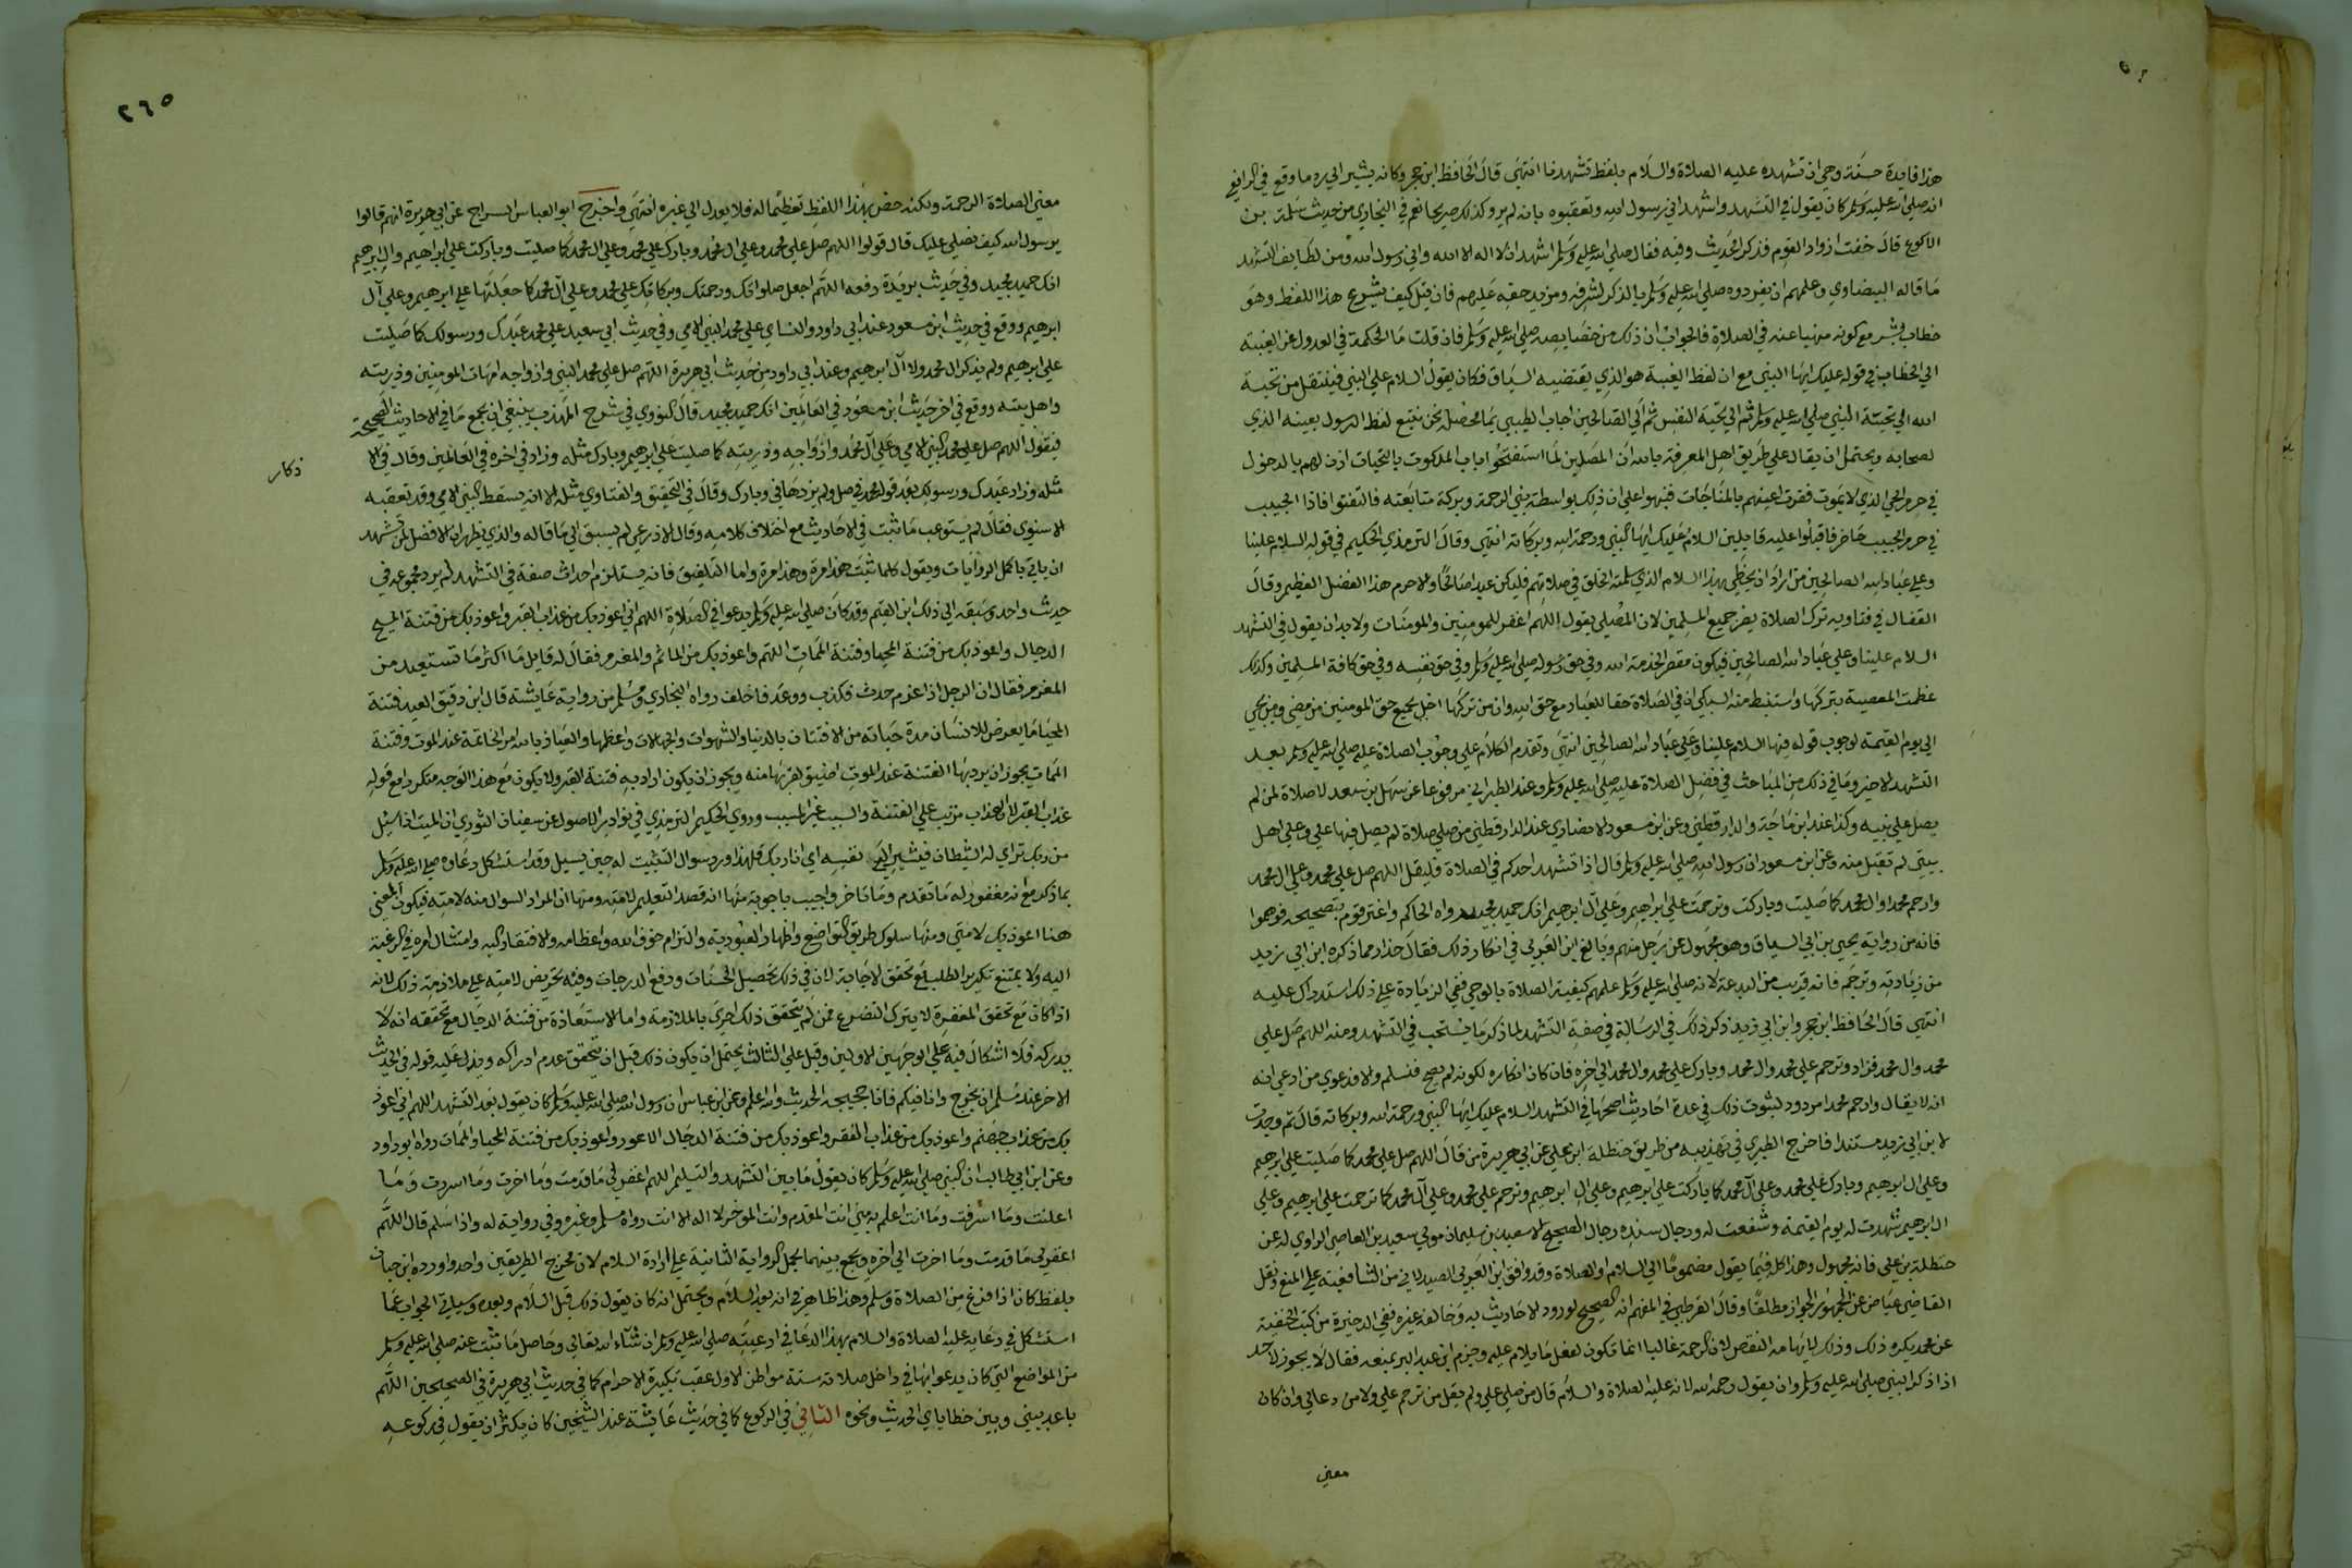 هذا فايدة حسنة وهي ان تشهده عليه الصلاة والسلام بلفظ تشهدنا انتهى قال الحافظ ابن حجر وكانه يشير الى رد ما وقع في الرافعي
انه صلى الله عليه وسلم كان يقول في التشهد واشهد اني رسول الله وتعقبوه بانه لم يرو كذلك صريحا نعم في البخاري من حديث سلمة بن
الاكوع قال خفت ازواد القوم فذكر الحديث وفيه فقال صلى الله عليه وسلم اشهد ان لا اله الا الله واني رسول الله ومن لطايف التشهد
ما قاله البيضاوي وعلمهم ان يفردوه صلى الله عليه وسلم بالذكر لشرفه ومزيد حقه عليهم فان قيل كيف يشرع هذا اللفظ وهو
خطاب بشر مع كونه منهيا عنه في الصلاة فالجواب ان ذلك من خصايصه صلى الله عليه وسلم فان قلت ما الحكمة في العدول عن الغيبة
الى الخطاب في قوله عليك ايها النبي مع ان لفظ الغيبة هو الذي يقتضيه السياق فكان يقول السلام على النبي فينتقل من تحية
الله الى تحية النبي صلى الله عليه وسلم ثم الى تحية النفس ثم الى الصالحين اجاب الطيبي بما محصله نحن نتبع لفظ الرسول بعينه الذي
لصحابه ويحتمل ان يقال على طريق اهل المعرفة بالله ان المصلين لما استفتحوا باب الملكوت بالتحيات اذن لهم بالدخول
في حرم الحي الذي لا يموت فقرت اعينهم بالمناجات فنبهوا على ان ذلك بواسطة نبي الرحمة وبركة متابعته فالتفتوا فاذا الحبيب
في حرم الحبيب حاضر فاقبلوا عليه قايلين السلام عليك ايها النبي ورحمة الله وبركاته انتهى وقال الترمذي الحكيم في قوله السلام علينا
وعلى عباد الله الصالحين من اراد ان يحظى بهذا السلام الذي يسلمه الخلق في صلاتهم فليكن عبدا صالحا والا حرم هذا الفضل العظيم وقال
القفال في فتاويه ترك الصلاة يضر جميع المسلمين لان المصلي يقول اللهم اغفر للمومنين والمومنات ولا بد ان يقول في التشهد
السلام علينا وعلى عباد الله الصالحين فيكون مقصرا لخدمة الله وفي حق رسوله صلى الله عليه وسلم وفي حق نفسه وفي حق كافة المسلمين وكذلك
عظمت المعصية بتركها واستنبط منه السبكي ان في الصلاة حقا للعباد مع حق الله وان من تركها اخل بجميع حق المومنين من مضى ومن يجي
الى يوم القيمة لوجوب قوله فيها السلام علينا وعلى عباد الله الصالحين انتهى وتقدم الكلام على وجوب الصلاة عليه صلى الله عليه وسلم بعد
التشهد الاخير وما في ذلك من المباحث في فضل الصلاة عليه صلى الله عليه وسلم وعند الطبراني مرفوعا عن سهل بن سعد لا صلاة لمن لم
يصل على نبيه وكذا عند ابن ماجة والدارقطني وعن ابن مسعود الانصاري عند الدارقطني من صلى صلاة لم يصل فيها علي وعلى اهل
بيتي لم تقبل منه وعن ابن مسعود ان رسول الله صلى الله عليه وسلم قال اذا تشهد احدكم في الصلاة فليقل اللهم صل على محمد وعلى ال محمد
وارحم محمدا وال محمد كما صليت وباركت وترحمت على ابراهيم وعلى آل ابرهيم انك حميد مجيد رواه الحاكم واغتر قوم بتصحيحه فوهموا
فانه من رواية يحيى بن ابي السياق وهو مجهول عن رجل منهم وبالغ ابن العربي في انكار ذلك فقال حذار مما ذكره ابن ابي زيد
من زيادته وترحم فانه قريب من البدعة لانه صلى الله عليه وسلم علمهم كيفية الصلاة بالوحي ففي الزيادة على ذلك استدراك عليه
انتهى قال الحافظ ابن حجر وابن ابي زيد ذكر ذلك في الرسالة في صفة التشهد لما ذكر ما يستحب في التشهد ومنه اللهم صل على
محمد وال محمد فزاد وترحم على محمد وال محمد وبارك على محمد وال محمد الى اخره فان كان انكاره لكونه لم يصح فمسلم والا فدعوى من ادعى انه
انه لا يقال وارحم محمدا مردود لثبوت ذلك في عدة احاديث اصحها في التشهد السلام عليك ايها النبي ورحمة الله وبركاته قال ثم وجدت
لابن ابي زيد مستندا فاخرج الطبري في تهذيبه من طريق حنظلة ابن علي عن ابي هريرة من قال اللهم صل على محمد كما صليت على ابرهيم
وعلى ال ابرهيم وبارك على محمد وعلى آل محمد كما باركت على ابرهيم وعلى ال ابرهيم وترحم على محمد وعلى آل محمد كما ترحمت على ابرهيم وعلى
ال ابرهيم شهدت له يوم القيمة وشفعت له ورجال سنده رجال الصحيح الا سعيد بن سليمان مولى سعيد بن العاصي الراوي له عن
حنظلة بن علي فانه مجهول وهذا كله فيما يقول مضموما الى السلام او الصلاة وقد وافق ابن العربي الصيدلاني من الشافعية على المنع ونقل
القاضي عياض عن الجمهور الجواز مطلقا وقال القرطبي في المفهم انه الصحيح لورود الاحاديث به وخالفه غيره ففي الدخيرة من كتب الحنفية
عن محمد يكره ذلك وذلك لايهامه النقص لان الرحمة غالبا انما تكون لفعل ما يلام عليه وجزم ابن عبد البر بمنعه فقال لا يجوز لاحد
اذا ذكر النبي صلى الله عليه وسلم ان يقول رحمه الله لانه عليه الصلاة والسلام قال من صلى علي ولم يقل من ترحم علي ولا من دعا لي وان كان
معنى
٢٦٥
معنى الصلاة الرحمة ولكنه خص بهذا اللفظ تعظيما له فلا يعدل الى غيره انتهى واخرج ابو العباس السراج عن ابي هريرة انهم قالوا
يرسول الله كيف نصلي عليك قال قولوا اللهم صل على محمد وعلى ال محمد وبارك على محمد وعلى ال محمد كما صليت وباركت على ابراهيم وال ابرهيم
انك حميد مجيد وفي حديث بريدة رفعه اللهم اجعل صلواتك ورحمتك وبركاتك على محمد وعلى آل محمد كما جعلتها على ابرهيم وعلى آل
ابرهيم ووقع في حديث ابن مسعود عند ابي داود والنساي على محمد النبي الامي وفي حديث ابي سعيد على محمد عبدك ورسولك كما صليت
على ابرهيم ولم يذكر ال محمد ولا آل ابرهيم وعند ابي داود من حديث ابي هريرة اللهم صل على محمد النبي وازواجه امهات المومنين وذريته
واهل بيته ووقع في اخر حديث ابن مسعود في العالمين انك حميد مجيد قال النووي في شرح المهذب ينبغي ان يجمع ما في الاحاديث الصحيحة
فيقول اللهم صل على محمد النبي الامي وعلى آل محمد وازواجه وذريته كما صليت على ابرهيم وبارك مثله وزاد في اخره في العالمين وقال في الا
ذكار
مثله وزاد عبدك ورسولك بعد قوله محمد في صل ولم يزدها في وبارك وقال في التحقيق والفتاوي مثله الا انه يسقط النبي الامي وقد تعقبه
الاسنوي فقال لم يستوعب ما ثبت في الاحاديث مع اختلاف كلامه وقال الاذرعي لم يسبق الى ما قاله والذي يظهر ان الافضل لمن تشهد
ان ياتي باكمل الروايات ويقول كلما ثبت هذا مرة وهذا مرة واما التلفيق فانه يستلزم احداث صفة في التشهد لم يرد مجموعه في
حديث واحد وسبقه الى ذلك ابن القيم وقد كان صلى الله عليه وسلم يدعوا في الصلاة اللهم اني اعوذ بك من عذاب القبر واعوذ بك من فتنة المسيح
الدجال واعوذ بك من فتنة المحيا وفتنة الممات اللهم واعوذ بك من الماثم والمغرم فقال له قايل ما اكثر ما تستعيد من
المغرم فقال ان الرجل اذا غرم حدث فكذب ووعد فاخلف رواه البخاري ومسلم من رواية عايشة قال ابن دقيق العيد فتنة
المحيا ما يعرض للانسان مدة حياته من الافتتان بالدنيا والشهوات والجهالات واعظمها والعياذ بالله امر الخاتمة عند الموت وفتنة
الممات يجوز ان يرد بها الفتنة عند الموت اضيق لقربها منه ويجوز ان يكون اراد به فتنة القبر ولا يكون مع هذا الوجه متكررا مع قوله
عذاب القبر لان العذاب مرتب على الفتنة والسبب غير المسبب وروى الحكيم الترمذي في نوادر الاصول عن سفيان الثوري ان الميت اذا سيل
من ربك تراي له الشيطان فيشير الى نفسه اي انا ربك فلهذا ورد سوال التثبيت له حين يسيل وقد استشكل دعاوه صلى الله عليه وسلم
بما ذكر مع انه مغفور له ما تقدم وما تاخر واجيب باجوبة منها انه قصد التعليم لامته ومنها ان المراد السوال منه لامته فيكون المعنى
هنا اعوذ بك لامتي ومنها سلوك طريق التواضع واظهار العبودية والتزام خوف الله واعظامه والافتقار اليه وامتثال امره في الرغبة
اليه ولا يمتنع تكرير الطلب مع تحقق الاجابة لان في ذلك تحصيل الحسنات ورفع الدرجات وفيه تحريض لامته على ملازمة ذلك لانه
اذا كان مع تحقق المغفرة لا يترك التضرع فمن لم يتحقق ذلك احرى بالملازمة واما الاستعاذة من فتنة الدجال مع تحققه انه لا
يدركه فلا اشكال فيه على الوجهين الاولين وقيل على الثالث يحتمل ان يكون ذلك قبل ان يتحقق عدم ادراكه ويدل عليه قوله في الحديث
الاخر عند مسلم ان يخرج وانا فيكم فانا حجيجه الحديث والله اعلم وعن ابن عباس ان رسول الله صلى الله عليه وسلم كان يقول بعد التشهد اللهم اني اعوذ
بك من عذاب جهنم واعوذ بك من عذاب القبر واعوذ بك من فتنة الدجال الاعور واعوذ بك من فتنة المحيا والممات رواه ابو داود
وعن ابن ابي طالب ان النبي صلى الله عليه وسلم كان يقول ما بين التشهد والتسليم اللهم اغفر لي ما قدمت وما اخرت وما اسررت وما
اعلنت وما اسرفت وما انت اعلم به مني انت المقدم وانت الموخر لا اله الا انت رواه مسلم وغيره وفي رواية له واذا سلم قال اللهم
اغفر لي ما قدمت وما اخرت الى اخره ويجمع بينهما بحمل الرواية الثانية على ارادة السلام لان مخرج الطريقين واحد واورده ابن حبان
بلفظ كان اذا فرغ من الصلاة وسلم وهذا ظاهر في انه بعد السلام ويحتمل انه كان يقول ذلك قبل السلام وبعده وسياتي الجواب عما
استشكل في دعايه عليه الصلاة والسلام بهذا الدعا في ادعيته صلى الله عليه وسلم ان شاء الله تعالى وحاصل ما ثبت عنه صلى الله عليه وسلم
من المواضع التي كان يدعو بها في داخل صلاته ستة مواطن الاول عقب تكبيرة الاحرام كما في حديث ابي هريرة في الصحيحين اللهم
باعد بيني وبين خطاياي الحديث ونحوه الثاني في الركوع كما في حديث عايشة عند الشيخين كان يكثر ان يقول في ركوعه